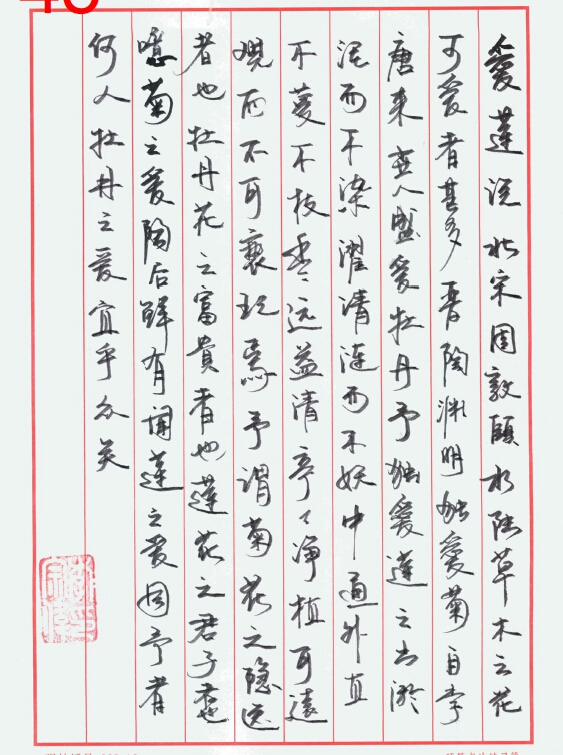 爱莲说北宋周敦颐水陆草木之花
可爱者甚多晋陶渊明独爱菊自李
唐来世人盛爱牡丹予独爱莲之出淤
泥而不染濯清涟而不妖中通外直
不蔓不枝香远益清亭々净植可远
观而不可亵玩焉予谓菊花之隐逸
者也牡丹花之富贵者也莲花之君子
者也噫菊之爱陶后鲜有闻莲之爱同予者
何人牡丹之爱宜乎众矣